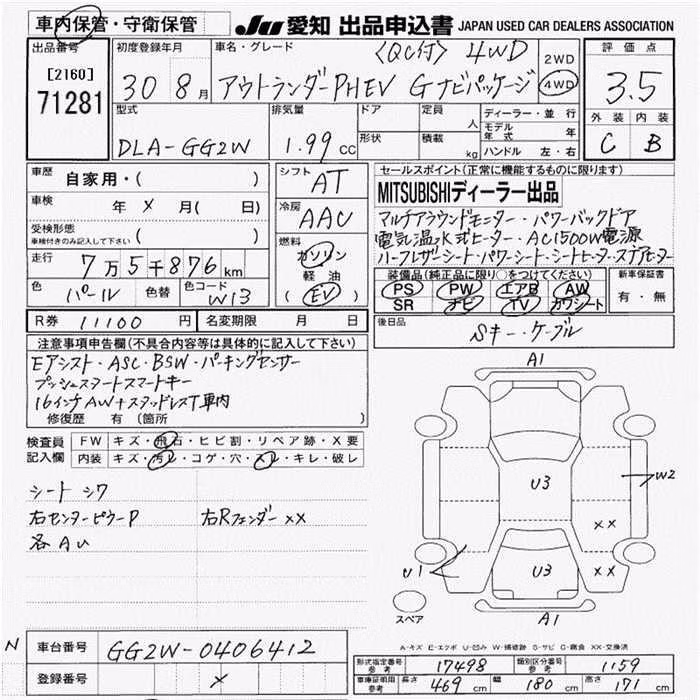 車内保管・守衛保管
JU 愛知 出品申込書 JAPAN USED CAR DEALERS ASSOCIATION
出品番号
[2160]
71281
初度登録年月
30 8 月
車名・グレード
〈QC付〉 4WD
アウトランダーPHEV Gナビパッケージ
2WD
4WD
評価点
3.5
外装 内装
C B
型式
DLA-GG2W
排気量
1.99 cc
ドア
形状
定員 人
積載 kg
ディーラー・並行
モデル年式 年
ハンドル 左・右
車歴 自家用・( )
車検 年 × 月( 日)
受検形態
車検付きのみ記入して下さい ( )
走行 7万5千876km
色 パール 色替 色コード W13
シフト AT
冷房 AAC
燃料
ガソリン
軽油
(EV)
セールスポイント(正常に機能するものに限ります)
MITSUBISHIディーラー出品
マルチアラウンドモニター・パワーバックドア
電気温水式ヒーター・AC1500W電源
ハーフレザーシート・パワーシート・シートヒーター・スペアヒーター
装備品(純正品に限り○をつけてください)
PS PW エアB AW
SR ナビ TV カワシート
新車保証書
有・無
R券 11100 円 名変期限 月 日
後日品
Sキー・ケーブル
注意事項申告欄(不具合内容等は具体的に記入して下さい)
Eアシスト・ASC・BSW・パーキングセンサー
プッシュスタートスマートキー
16インチAW+スタッドレスT車内
修復歴 有 (箇所 )
検査員記入欄
FW キズ・飛石・ヒビ割・リペア跡・X要
内装 キズ・汚レ・コゲ・穴・スレ・キレ・破レ
シート シワ
右センターピラーP 右Rフェンダー××
各AU
A1
U3
W2
××
U1
U3
××
スペア
A1
A-キズ E-エクボ U-凹み W-補修跡 S-サビ C-腐食 XX-交換済
N
車台番号 GG2W-0406412
登録番号 ×
形式指定番号 参考 17498 類別区分番号 参考 1159
車庫証明用 参考 長さ 469 cm 幅 180 cm 高さ 171 cm